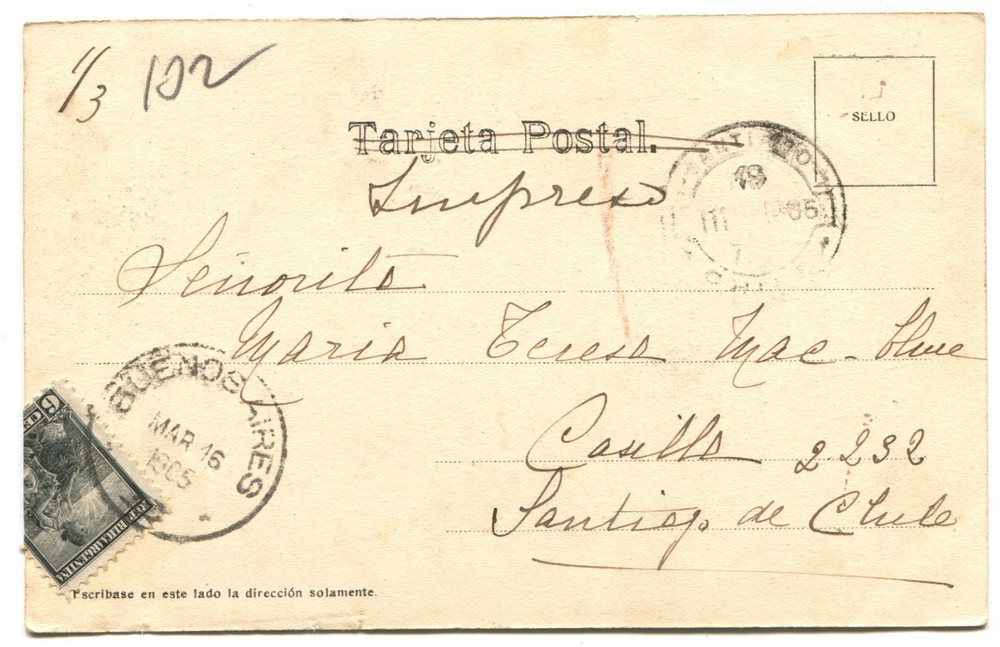 1/3 102
Tarjeta Postal.
SELLO
Impreso
SANTIAGO
19
III 05
7
CHILE
Señorita
Maria Teresa Mac-Clure
Casilla 2232
Santiago de Chile
BUENOS AIRES
MAR 16
1905
6
REPUBLICA ARGENTINA
Escribase en este lado la dirección solamente.